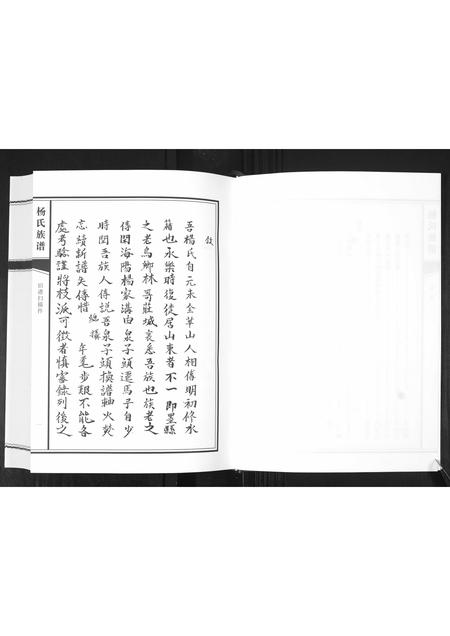 敘
吾楊氏自元末金華山人相傳明初修水
籍也永樂時復徙居山東者不一即墨縣
之老鳥鄉林哥莊城裏悉吾族也族老之
傳聞海陽楊家溝由泉子頭遷馬子自少
時聞吾族人傳說吾泉子頭換譜軸火焚
忘續新譜失傳惜 繼橫 年耄步艱不能各
處考驗謹將枝派可徵者慎審錄列後之
杨氏族谱
旧谱扫描件